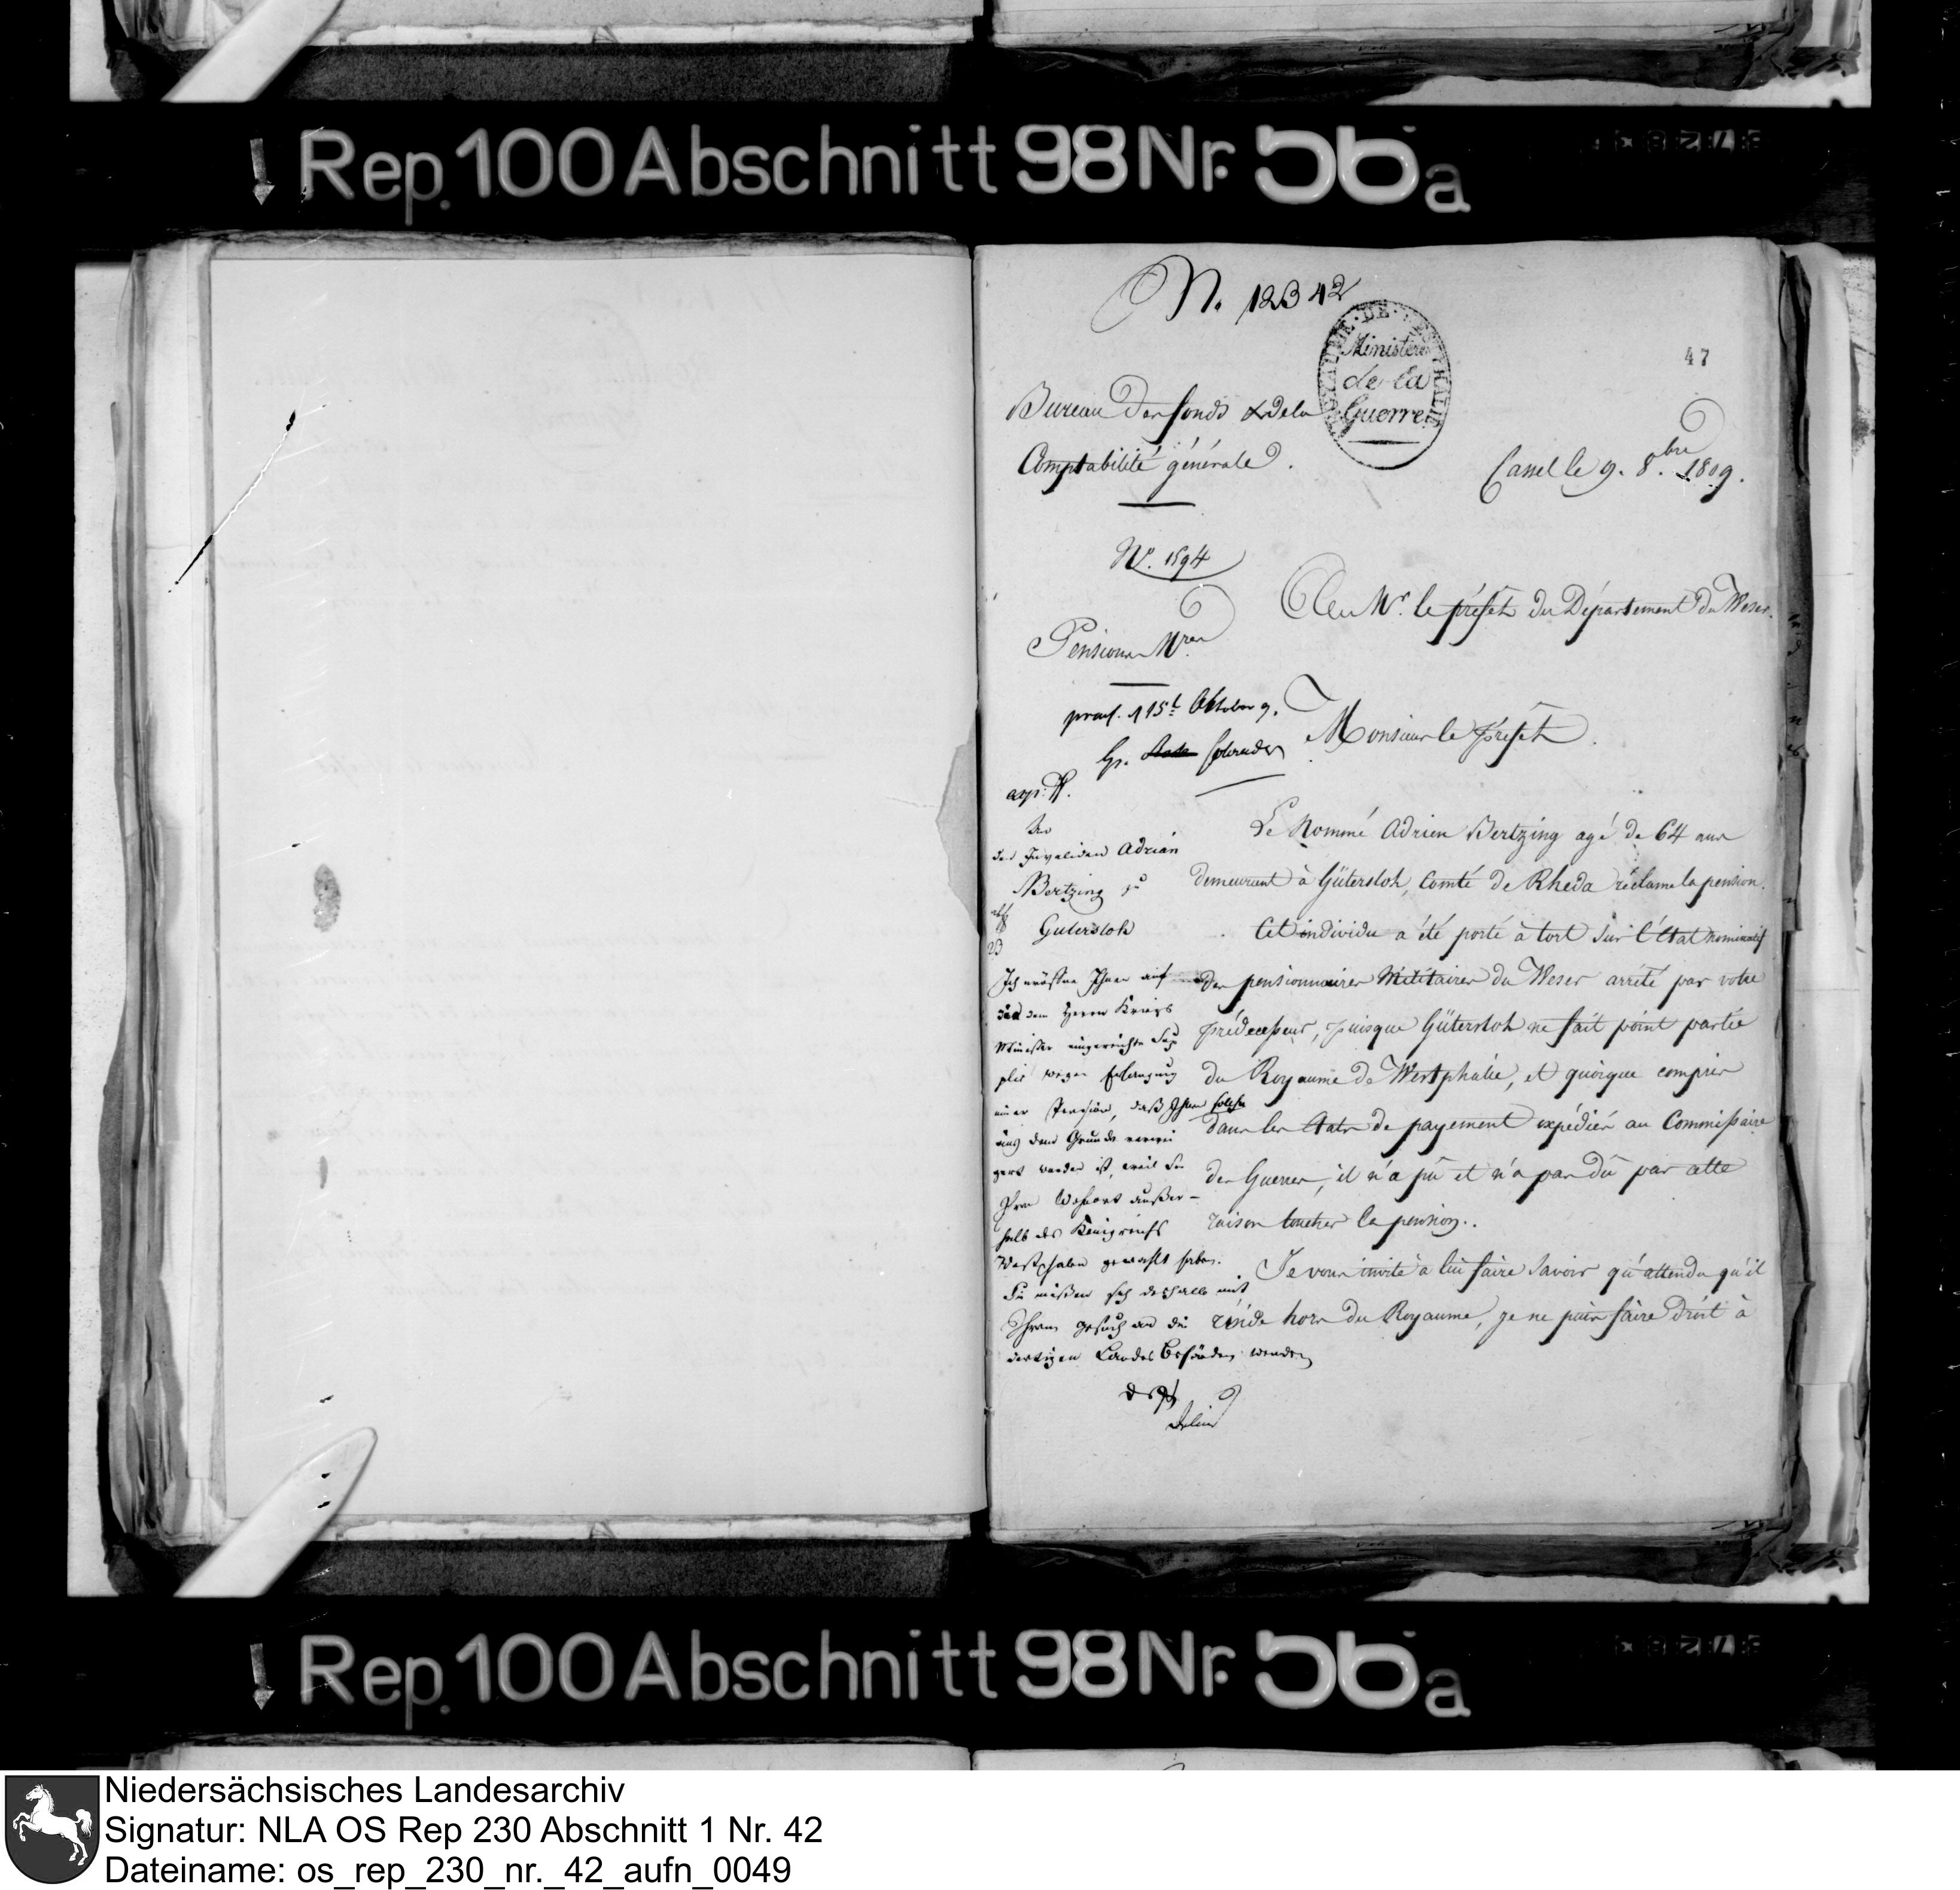 Rep. 100 Abschnitt 98 Nr. 56a
N. 12342
ROYAUME DE WESTPHALIE
Ministère
de la
Guerre
47
Bureau des fonds & de la
Comptabilité générale.
Cassel le 9. 8.bre 1809.
N°. 1594
A Mr. le préfet du Département du Weser.
Pensions Mres
praes. d 15t October 9.
Monsieur le préfet.
exp.
An
den Invaliden Adrian
Bertzing zu
Gutersloh
23
Ich eröffne Ihnen auf
dem Herrn Kriegs
Minister eingereichte Sup
plic wegen Erlangung
einer Pension, daß Ihnen solche
aus dem Grunde verwei
gert worden ist, weil Sie
Ihren Wohnort außer-
halb des Königreichs
Westphalen gewählt haben.
Sie müßen sich deshalb mit
Ihrem Gesuch an die
dortigen Landes Behörden wenden
Le Nommé Adrien Bertzing agé de 64 ans
demeurant à Gütersloh, Comté de Rheda réclame la pension.
Cet individu a été porté à tort sur l'État nominatif
des pensionnaires Militaires du Weser arrêté par votre
prédecesseur, puisque Gütersloh ne fait point partie
du Royaume de Westphalie, et quoique compris
dans les états de payement expédiés au Commissaire
des Guerres, il n'a pû et n'a pas dû par cette
raison toucher la pension.
Je vous invite à lui faire savoir qu'attendu qu'il
réside hors du Royaume, je ne puis faire droit à
Rep. 100 Abschnitt 98 Nr. 56a
Niedersächsisches Landesarchiv
Signatur: NLA OS Rep 230 Abschnitt 1 Nr. 42
Dateiname: os_rep_230_nr._42_aufn_0049